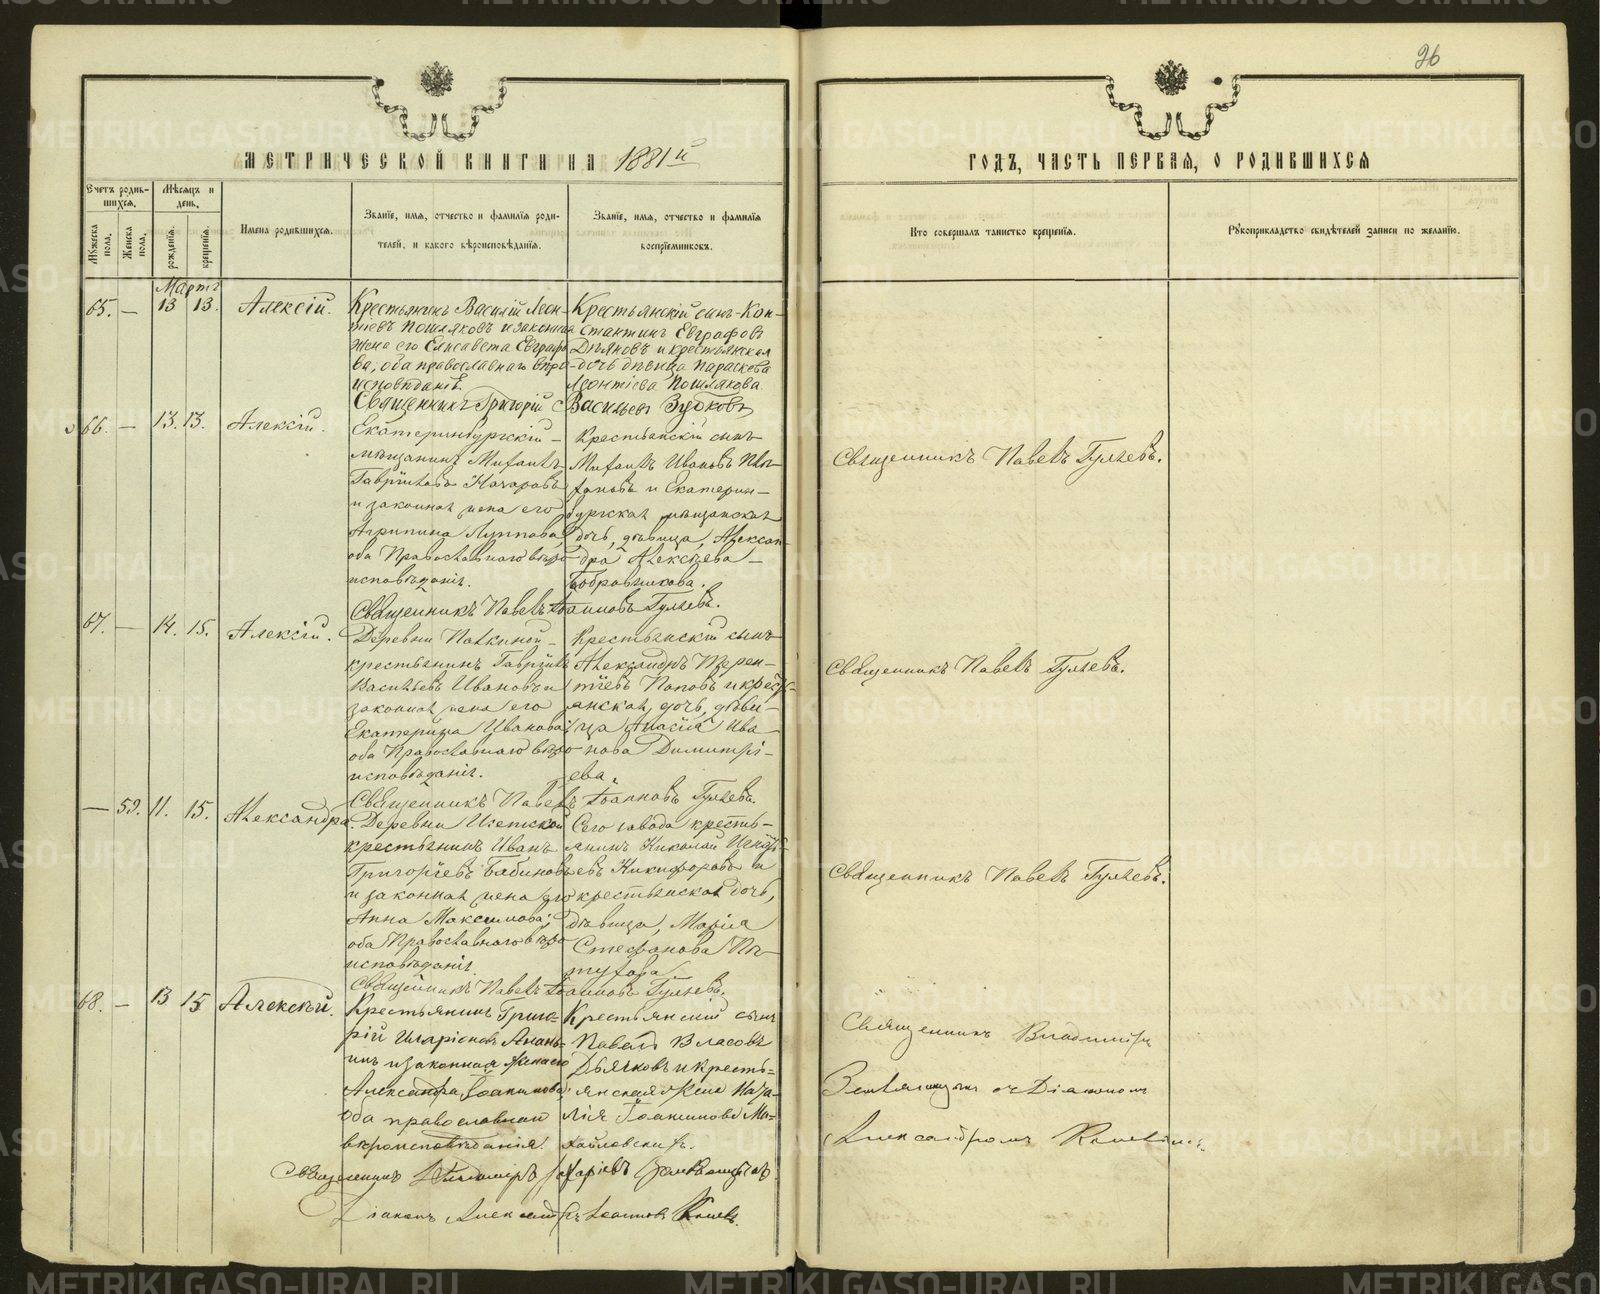 26
МЕТРИЧЕСКОЙ КНИГИ НА 1881й
ГОДЪ, ЧАСТЬ ПЕРВАЯ, О РОДИВШИХСЯ
Счетъ родив-
шихся.
Мужеска
пола.
Женска
пола.
Мѣсяцъ и
день.
рожденія.
крещенія.
Имена родившихся.
Званіе, имя, отчество и фамилія роди-
телей, и какого вѣроисповѣданія.
Званіе, имя, отчество и фамилія
воспріемниковъ.
Кто совершалъ таинство крещенія.
Рукоприкладство свидѣтелей записи по желанію.
Мартъ
65. — 13 13. Алексій.
Крестьянинъ Василій Леон-
тіевъ Пошляковъ и законная
жена его Елисавета Евграфо
ва, оба православнаго вѣро
исповѣданія.
Крестьянскій сынъ Кон-
стантинъ Евграфовъ
и крестьянская
дочь дѣвица Параскева
Леонтіева Пошлякова
Священникъ Григорій Васильевъ Зубковъ
66. — 13. 13. Алексій.
Екатеринбургскій
мѣщанинъ Михаилъ
Гавріиловъ
и законная жена его
Агрипина Луппова,
оба Православнаго вѣро
исповѣданія.
Крестьянскій сынъ
Михаилъ Ивановъ
и Екатерин-
бургская мѣщанская
дочь, дѣвица, Алексан-
дра Алексѣева
Бобровникова.
Священникъ Павелъ Гуляевъ.
Священникъ Павелъ Іоанновъ Гуляевъ.
67. — 14. 15. Алексій.
Деревни
крестьянинъ Гавріилъ
Васильевъ Ивановъ и
законная жена его
Екатерина Иванова,
оба Православнаго вѣро
исповѣданія.
Крестьянскій сынъ
Александръ Терен-
тіевъ Поповъ и кресть-
янская дочь, дѣви-
ца Ива
нова Димитрі-
ева.
Священникъ Павелъ Гуляевъ.
Священникъ Павелъ Іоанновъ Гуляевъ.
— 59. 11. 15. Александра.
Деревни Исетской
крестьянинъ Иванъ
Григоріевъ Бабиновъ
и законная жена его
Анна Максимова,
оба Православнаго вѣро
исповѣданія.
Сего завода кресть-
янинъ Николай
Никифоровъ и
крестьянская дочь,
дѣвица, Марія
Стефанова
Священникъ Павелъ Гуляевъ.
Священникъ Павелъ Іоанновъ Гуляевъ.
68. — 13 15 Алексѣй.
Крестьянинъ Григо-
рій Иларіоновъ Анань-
инъ и законная жена его
Александра Іоакимова,
оба православнаго
вѣроисповѣданія.
Крестьянскій сынъ
Павелъ Власовъ
Дьячковъ и кресть-
янская жена Ната-
лія Іоакимова
Священникъ Владиміръ
съ Діакономъ
Александромъ
Священникъ Владиміръ
Діаконъ Александръ Іоанновъ
METRIKI.GASO-URAL.RU